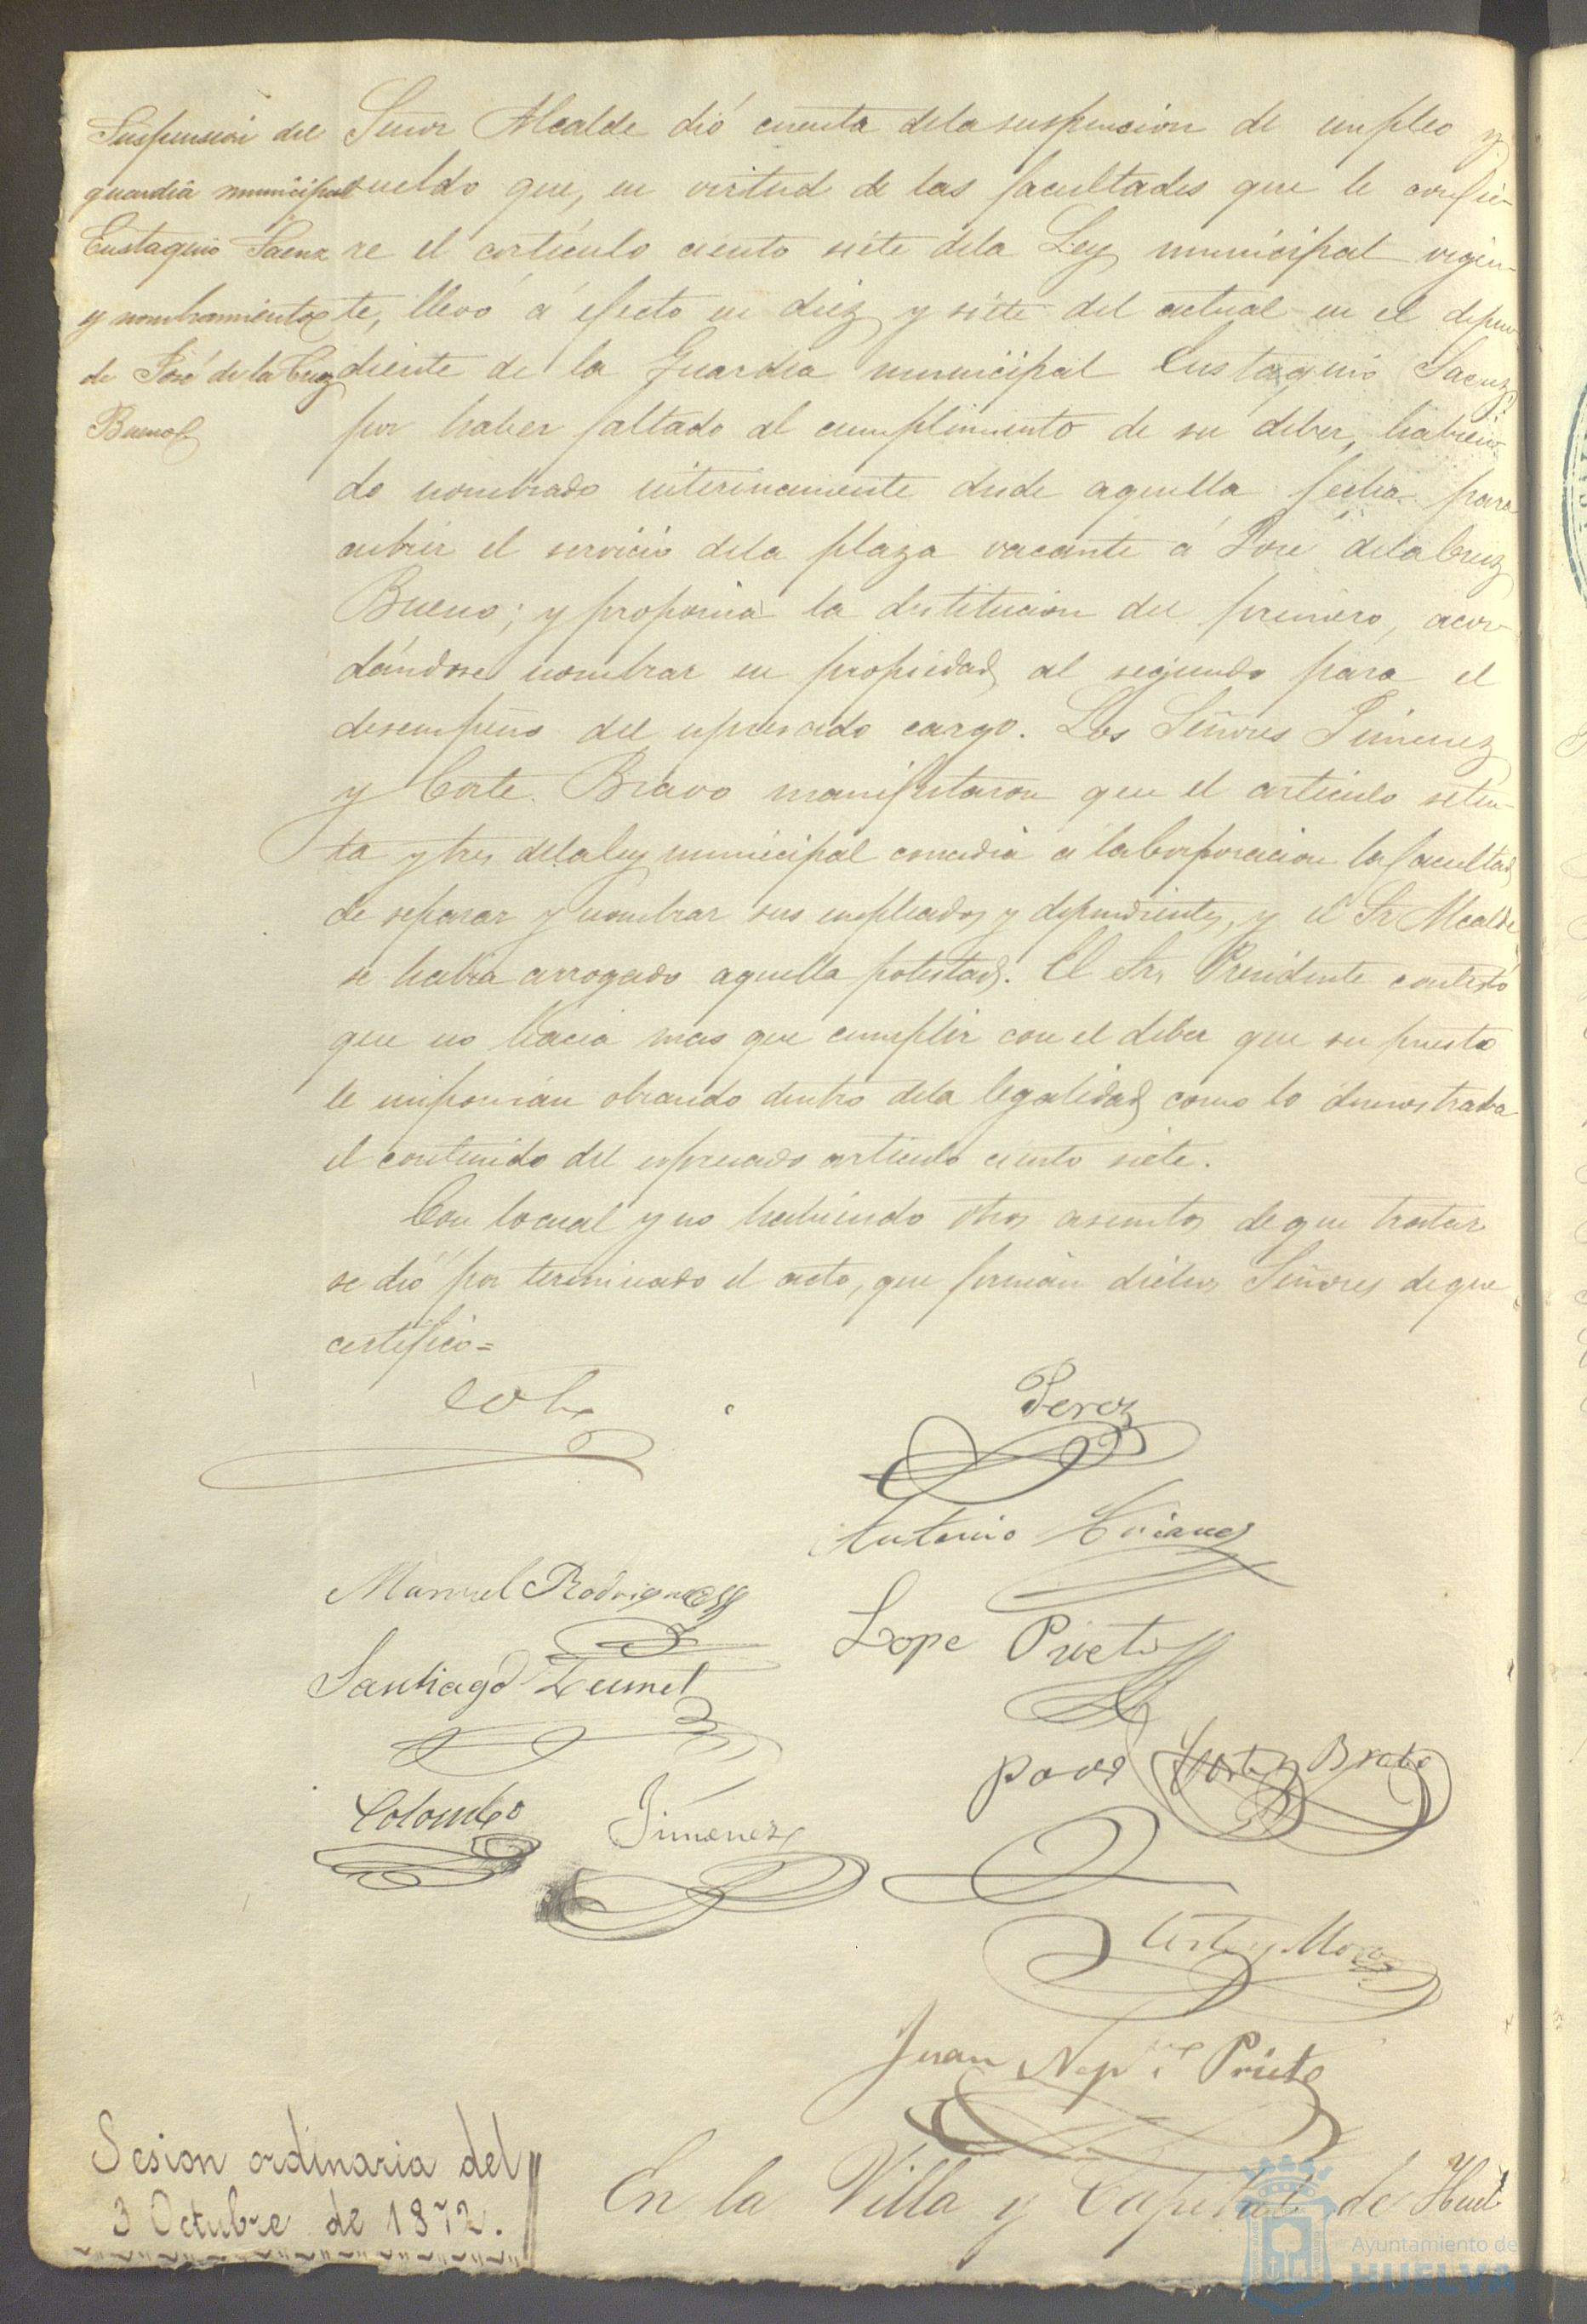 Suspension del
guardia municipal
Eustaquio Saenz
y nombramiento
de José de la Cruz
Bueno
Señor Alcalde dió cuenta dela suspension de empleo y
sueldo que, en virtud de las facultades que le confie-
re el artículo ciento siete dela Ley municipal vigen-
te, llevó á efecto en diez y siete del actual en el depen
diente de la Guardia municipal Eustaquio Saenz
por haber faltado al cumplimiento de su deber, habien
do nombrado interinamente desde aquella fecha para
cubrir el servicio dela plaza vacante á José dela Cruz
Bueno; y proponia la destitucion del primero, acor-
dándose nombrar en propiedad al segundo para el
desempeño del espresado cargo. Los Señores Jimenez
y Corte Bravo manifestaron que el articulo seten-
ta y tres dela ley municipal concedia a la Corporacion la facultad
de separar y nombrar sus empleados y dependientes, y el Sr Alcalde
se habia arrogado aquella potestad. El Sr. Presidente contestó
que no hacia mas que cumplir con el deber que su puesto
le imponian obrando dentro dela legalidad como lo demostraba
el contenido del espresado articulo ciento siete.
Con lo cual y no habiendo otros asuntos de que tratar
se dió por terminado el acto, que firman dichos Señores de que
certifico=
Perez
Antonio
Manuel Rodriguez
Lope Prieto
Santiago
Corte Bravo
Colombo
Jimenez
Mora
Juan Nep. Prieto
Sesion ordinaria del
3 Octubre de 1872.
En la Villa y Capital de Huel
Ayuntamiento de
HUELVA